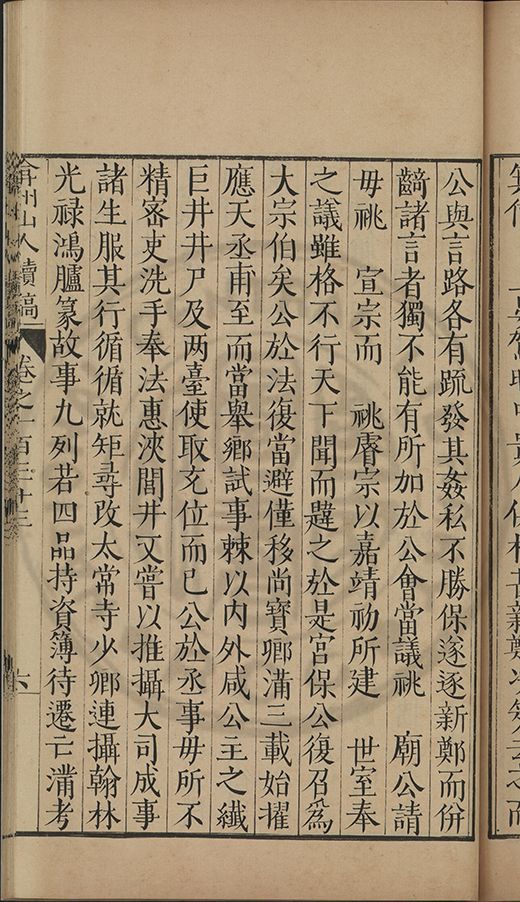 公與言路各有疏發其姦私不勝保遂逐新鄭而併
齮諸言者獨不能有所加於公會當議祧　廟公請
毋祧　宣宗而　祧睿宗以嘉靖初所建　世室奉
之議雖格不行天下聞而韙之於是宮保公復召為
大宗伯矣公於法復當避僅移尚寶卿滿三載始擢
應天丞甫至而當舉鄉試事棘以內外咸公主之纖
巨井井尹及两臺使取充位而已公於丞事毋所不
精密吏洗手奉法惠浹閭井又嘗以推攝大司成事
諸生服其行循循就矩尋改太常寺少卿連攝翰林
光禄鴻臚篆故事九列若四品持資簿待遷亡滿考
弇州山人續稿　卷之一百三十三　六